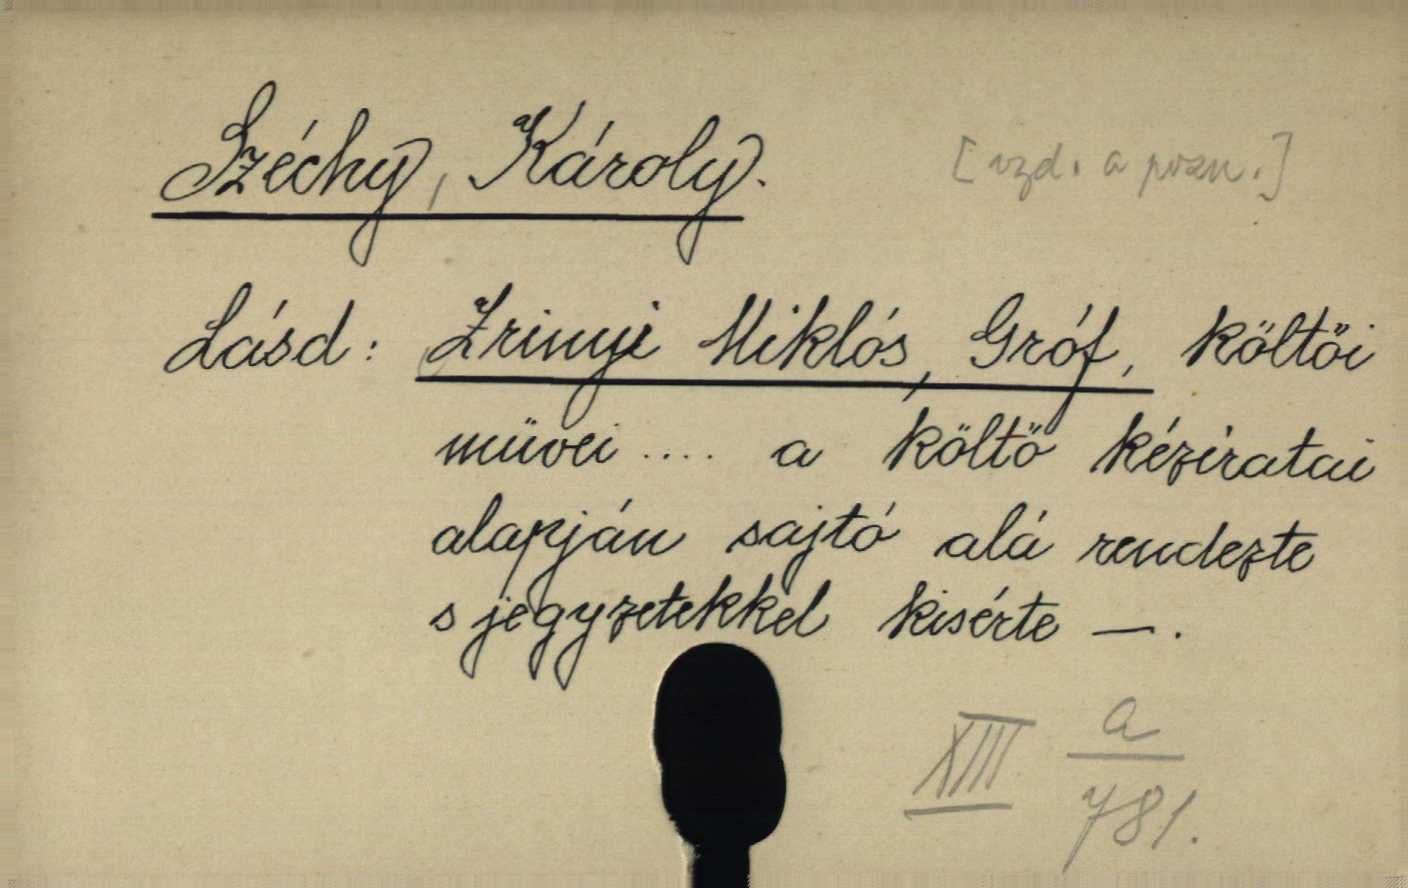 Széchy, Károly. [vzd. a pozn.]
Lásd: Zrinyi Miklós, Gróf, költői
müvei .... a költő kéziratai
alapján sajtó alá rendezte
s jegyzetekkel kisérte —.
XIII a
781.